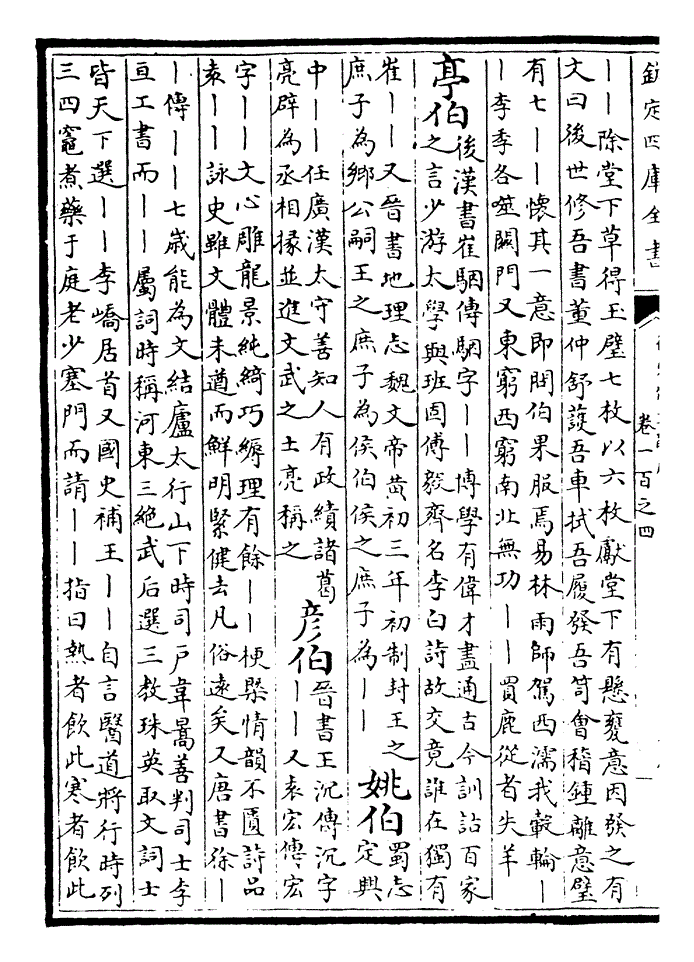 欽定四庫全書
卷一百之四
｜｜除堂下草得玉璧七枚以六枚獻堂下有懸甕意因發之有
文曰後世修吾書董仲舒護吾車拭吾履發吾笥會稽鍾離意璧
有七｜｜懷其一意即問伯果服焉易林雨師駕西濡我轂輪｜
｜李季各墜闕門又東窮西窮南北無功｜｜買鹿從者失羊
亭伯後漢書崔駰傳駰字｜｜博學有偉才盡通古今訓詁百家
之言少游太學與班固傅毅齊名李白詩故交竟誰在獨有
崔｜｜又晉書地理志魏文帝黄初三年初制封王之
庶子為鄉公嗣王之庶子為侯伯侯之庶子為｜｜
姚伯蜀志
定興
中｜｜任廣漢太守善知人有政績諸葛
亮辟為丞相掾並進文武之士亮稱之
彦伯晉書王沉傳沉字
｜｜又袁宏傳宏
字｜｜文心雕龍景純綺巧縟理有餘｜｜梗槩情韻不匱詩品
袁｜｜詠史雖文體未遒而鮮明緊健去凡俗遠矣又唐書徐｜
｜傳｜｜七歲能為文結廬太行山下時司戶韋暠善判司士李
亘工書而｜｜屬詞時稱河東三絶武后選三教珠英取文詞士
皆天下選｜｜李嶠居首又國史補王｜｜自言醫道將行時列
三四竈煮藥于庭老少塞門而請｜｜指曰熱者飲此寒者飲此